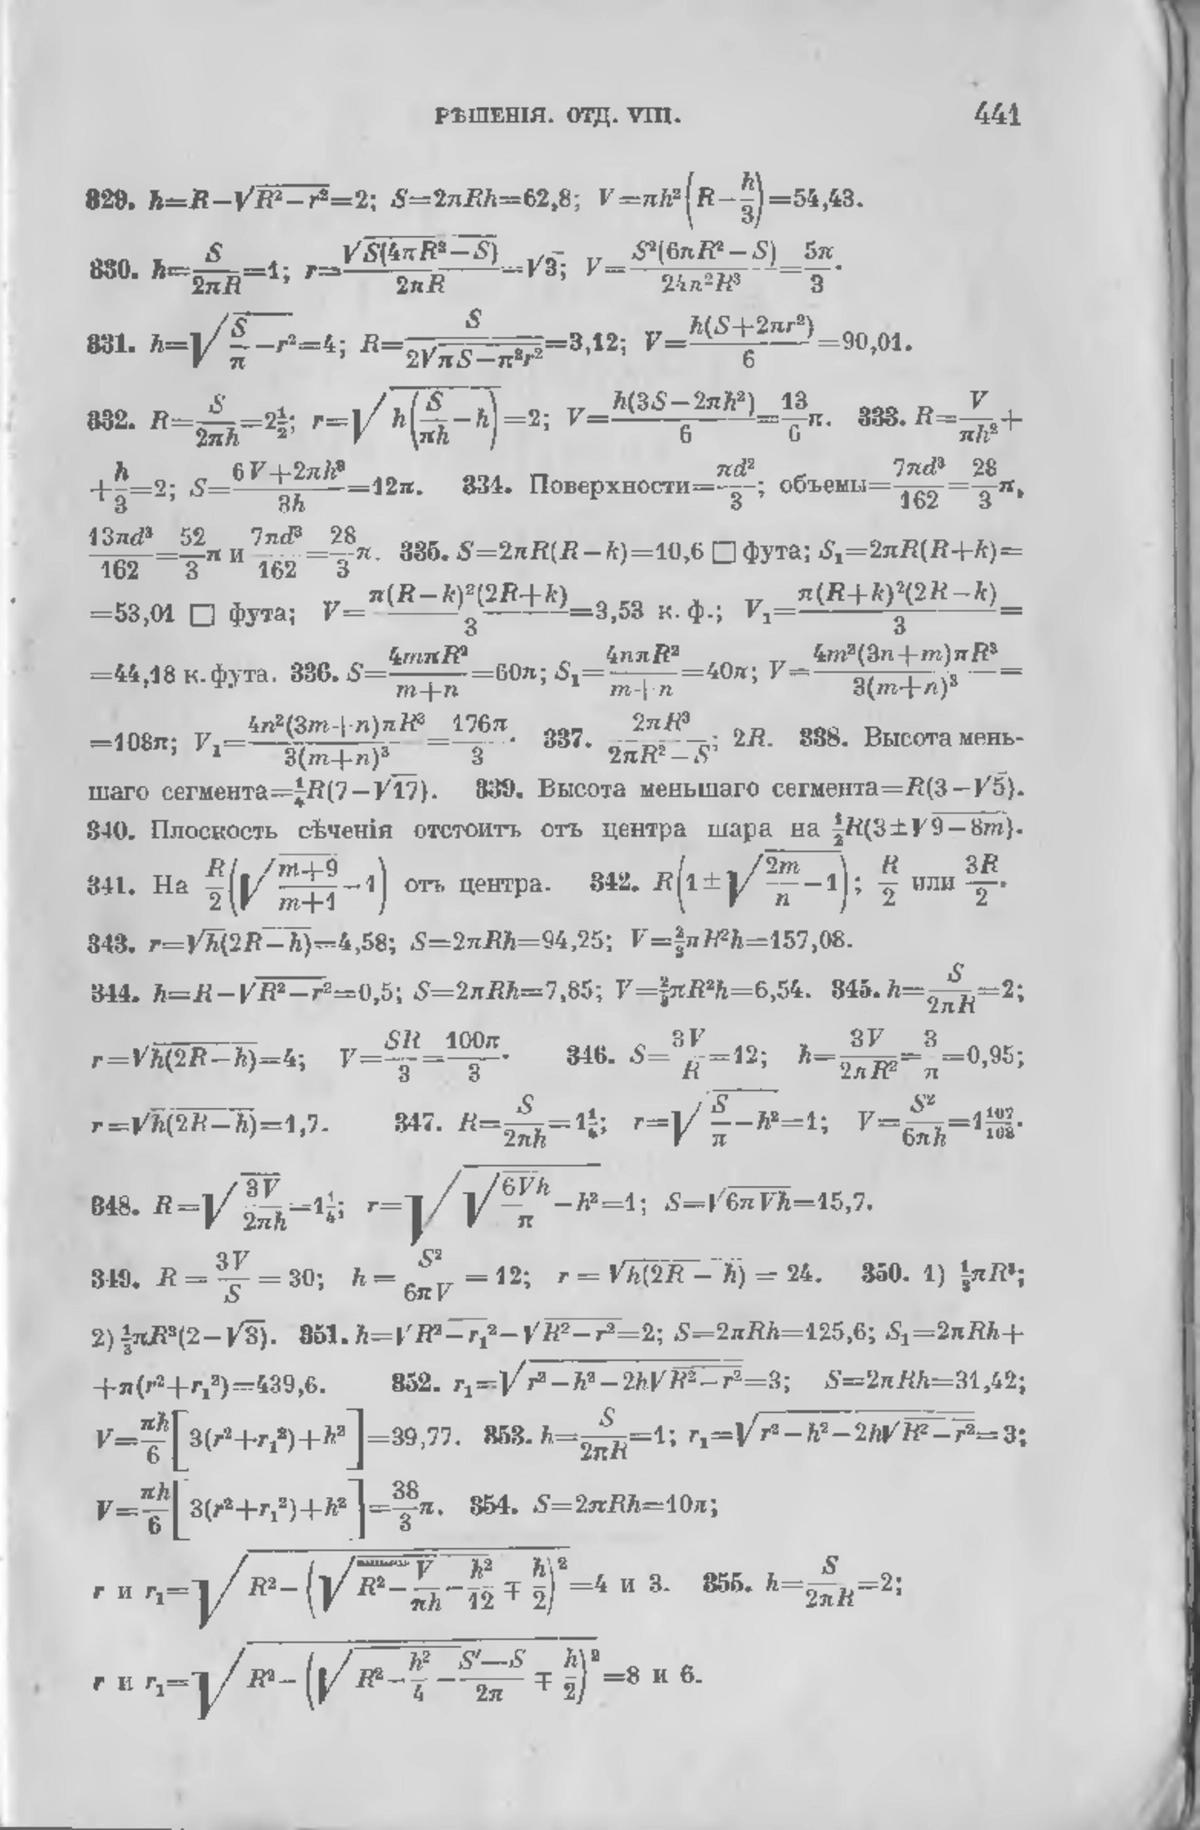 РѢШЕНІЯ. ОТД. VIII. 441
829. h=R−√(R²−r²)=2; S=2πRh=62,8; V=πh²(R−h/3)=54,43.
830. h=S/(2πR)=1; r=√(S(4πR²−S))/(2πR)=√3; V=S²(6πR²−S)/(24π²R³)=5π/3.
831. h=√(S/π−r²)=4; R=S/(2√(πS−π²r²))=3,12; V=h(S+2πr²)/6=90,01.
832. R=S/(2πh)=2½; r=√(h(S/(πh)−h))=2; V=h(3S−2πh²)/6=13/6 π. 333. R=V/(πh²)+
+h/3=2; S=(6V+2πh³)/(3h)=12π. 334. Поверхности=πd²/3; объемы=7πd³/162=28/3 π,
13πd³/162=52/3 π и 7πd³/162=28/3 π. 335. S=2πR(R−k)=10,6 □ фута; S₁=2πR(R+k)=
=53,01 □ фута; V=π(R−k)²(2R+k)/3=3,53 к. ф.; V₁=π(R+k)²(2R−k)/3=
=44,18 к. фута. 336. S=4mπR²/(m+n)=60π; S₁=4nπR²/(m+n)=40π; V=4m²(3n+m)πR³/(3(m+n)³)=
=108π; V₁=4n²(3m+n)πR³/(3(m+n)³)=176π/3. 337. 2πR³/(2πR²−S); 2R. 338. Высота мень-
шаго сегмента=¼R(7−√17). 339. Высота меньшаго сегмента=R(3−√5).
340. Плоскость сѣченія отстоитъ отъ центра шара на ½R(3±√(9−8m)).
341. На R/2(√((m+9)/(m+1))−1) отъ центра. 342. R(1±√(2m/n−1)); R/2 или 3R/2.
343. r=√(h(2R−h))=4,58; S=2πRh=94,25; V=⅔πR²h=157,08.
344. h=R−√(R²−r²)=0,5; S=2πRh=7,85; V=⅔πR²h=6,54. 345. h=S/(2πR)=2;
r=√(h(2R−h))=4; V=SR/3=100π/3. 346. S=3V/R=12; h=3V/(2πR²)=3/π=0,95;
r=√(h(2R−h))=1,7. 347. R=S/(2πh)=1¼; r=√(S/π−h²)=1; V=S²/(6πh)=1 107/108.
348. R=√(3V/(2πh))=1¼; r=√(√(6Vh/π)−h²)=1; S=√(6πVh)=15,7.
349. R=3V/S=30; h=S²/(6πV)=12; r=√(h(2R−h))=24. 350. 1) ⅓πR³;
2) ⅓πR³(2−√3). 351. h=√(R²−r₁²)−√(R²−r²)=2; S=2πRh=125,6; S₁=2πRh+
+π(r²+r₁²)=439,6. 352. r₁=√(r²−h²−2h√(R²−r²))=3; S=2πRh=31,42;
V=πh/6[3(r²+r₁²)+h²]=39,77. 353. h=S/(2πR)=1; r₁=√(r²−h²−2h√(R²−r²))=3;
V=πh/6[3(r²+r₁²)+h²]=38/3 π. 354. S=2πRh=10π;
r и r₁=√(R²−(√(R²−V/(πh)−h²/12)∓h/2)²)=4 и 3. 355. h=S/(2πR)=2;
r и r₁=√(R²−(√(R²−h²/4−(S′−S)/(2π))∓h/2)²)=8 и 6.